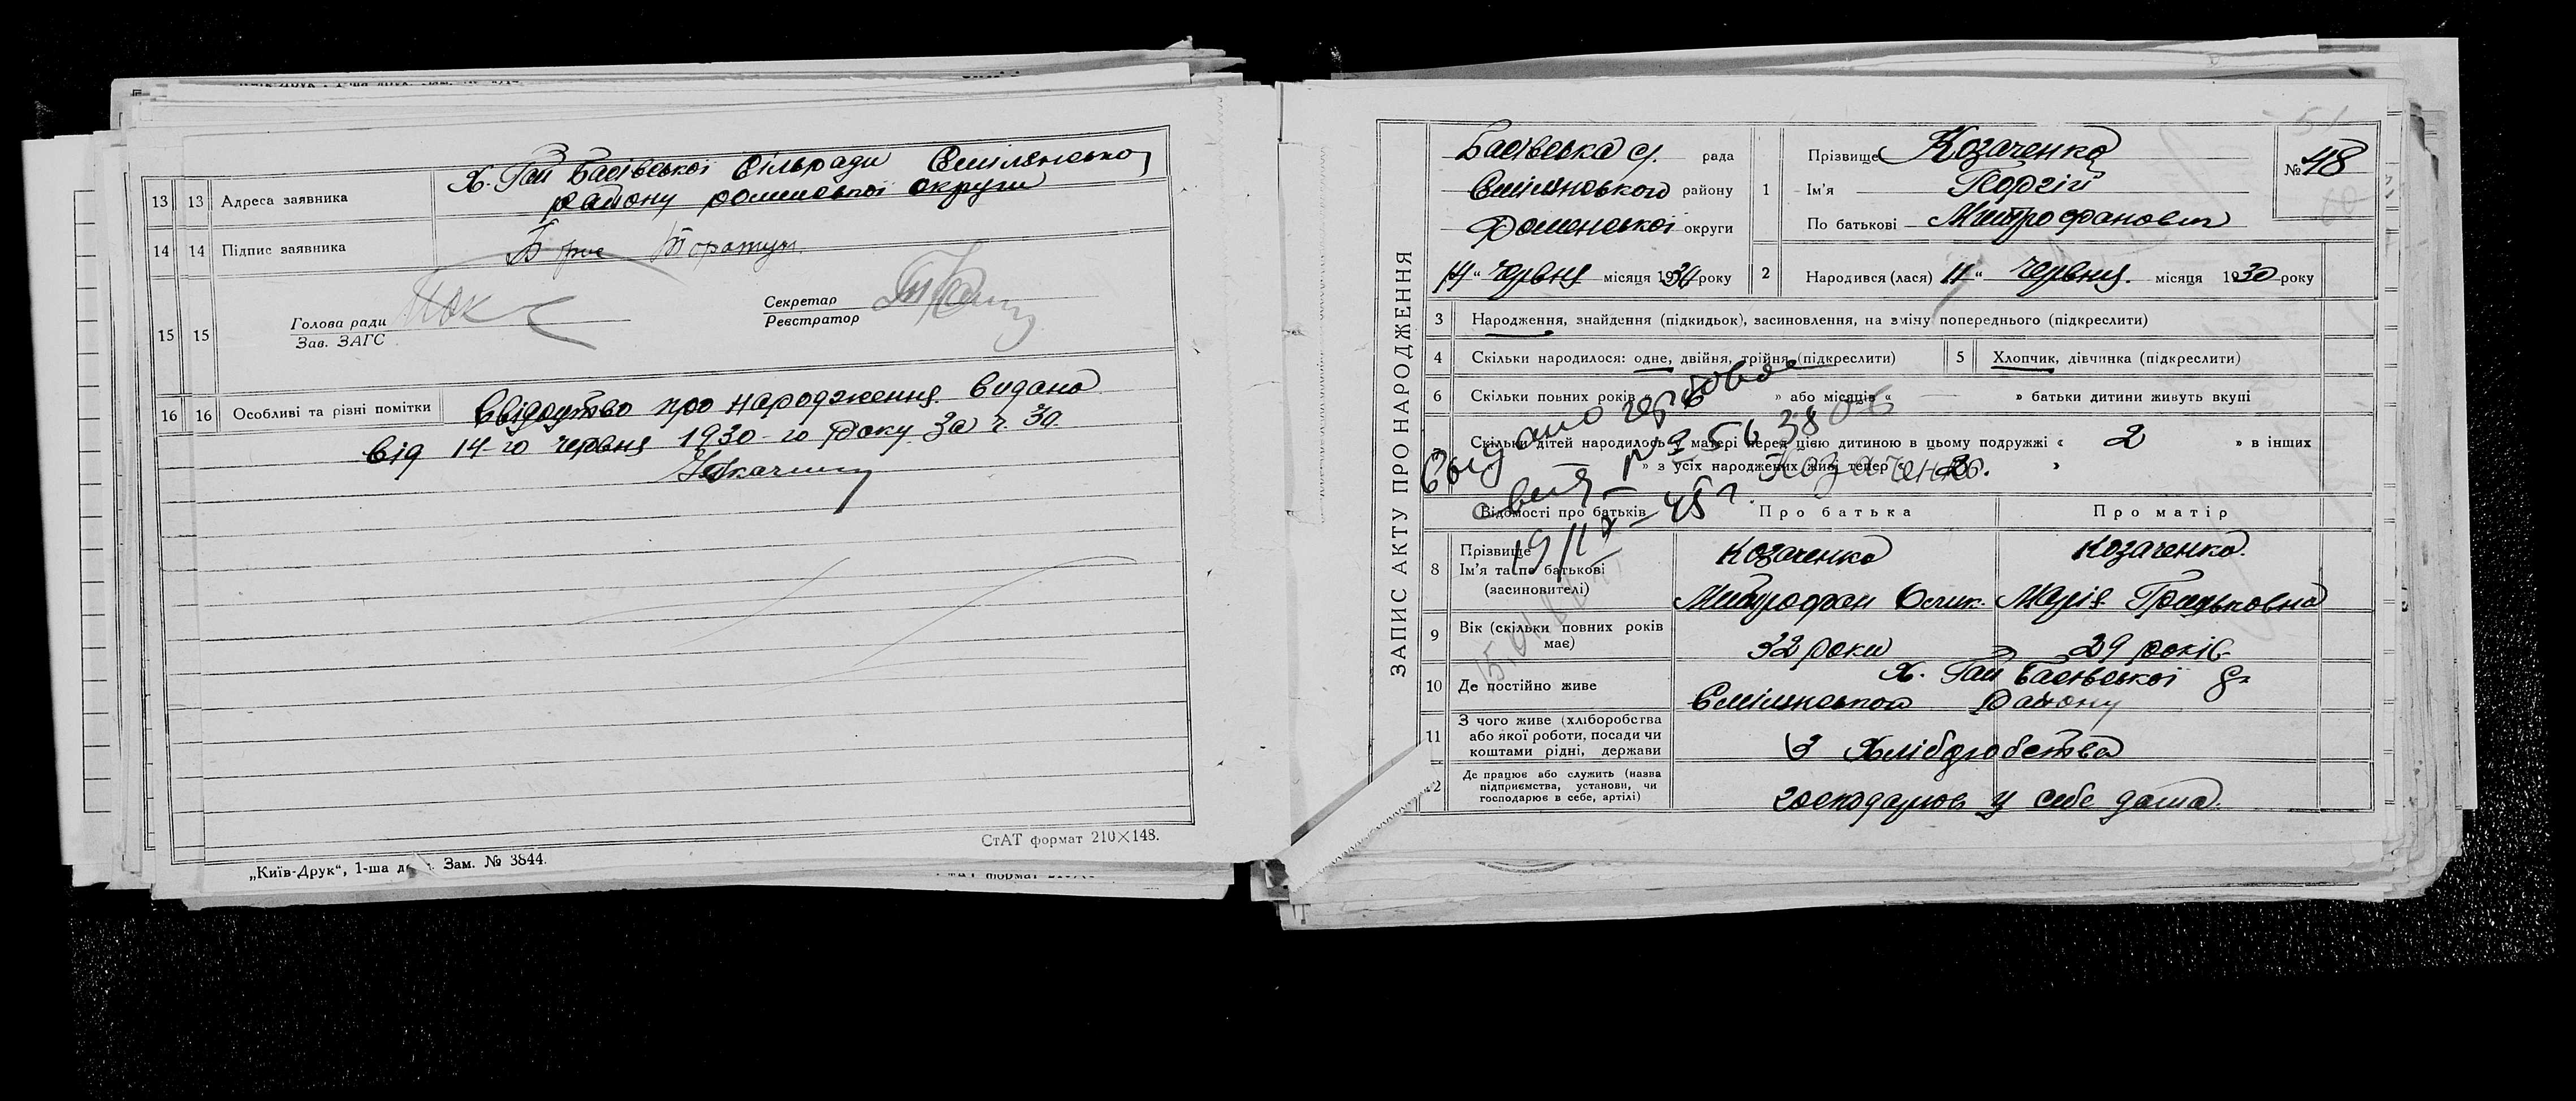 13 13 Адреса заявника Х. Гай Басівської Сільради Смілянського
району роменської округи
14 14 Підпис заявника
15 15 Голова ради
Зав. ЗАГС
Секретар
Реєстратор
16 16 Особливі та різні помітки Свідоцтво про народження видано
від 14-го червня 1930-го Року За ч. 30.
СтАТ формат 210×148.
„Київ-Друк“, 1-ша Зам. № 3844.
ЗАПИС АКТУ ПРО НАРОДЖЕННЯ
Басівська с/. рада
Смілянського району
Роменської округи
14 “ червня місяця 1930 року
1 Прізвище Козаченко
Ім'я Георгій
По батькові Митрофанович
№ 48
51
2 Народився (лася) 11 “ червня. місяця 1930 року
3 Народження, знайдення (підкидьок), засиновлення, на зміну попереднього (підкреслити)
4 Скільки народилося: одне, двійня, трійня (підкреслити)
5 Хлопчик, дівчинка (підкреслити)
6 Скільки повних років « » або місяців « » батьки дитини живуть вкупі
7 Скільки дітей народилось у матері перед цією дитиною в цьому подружжі « 2 » в інших
» з усіх народжених живі тепер « 2. »
Выдано гербовое
Козаченко.
19/IX-45 г.
Відомості про батьків Про батька Про матір
8 Прізвище
Ім'я та по батькові
(засиновителі)
Козаченко
Митрофан
Козаченко.
Марія Грицьковна
9 Вік (скільки повних років
має)
32 роки 29 років
10 Де постійно живе Х. Гай Басівської
Смілянського Району
11 З чого живе (хліборобства
або якої роботи, посади чи
коштами рідні, держави
З Хліборобства
12 Де працює або служить (назва
підприємства, установи, чи
господарює в себе, артілі)
господарює у себе дома.